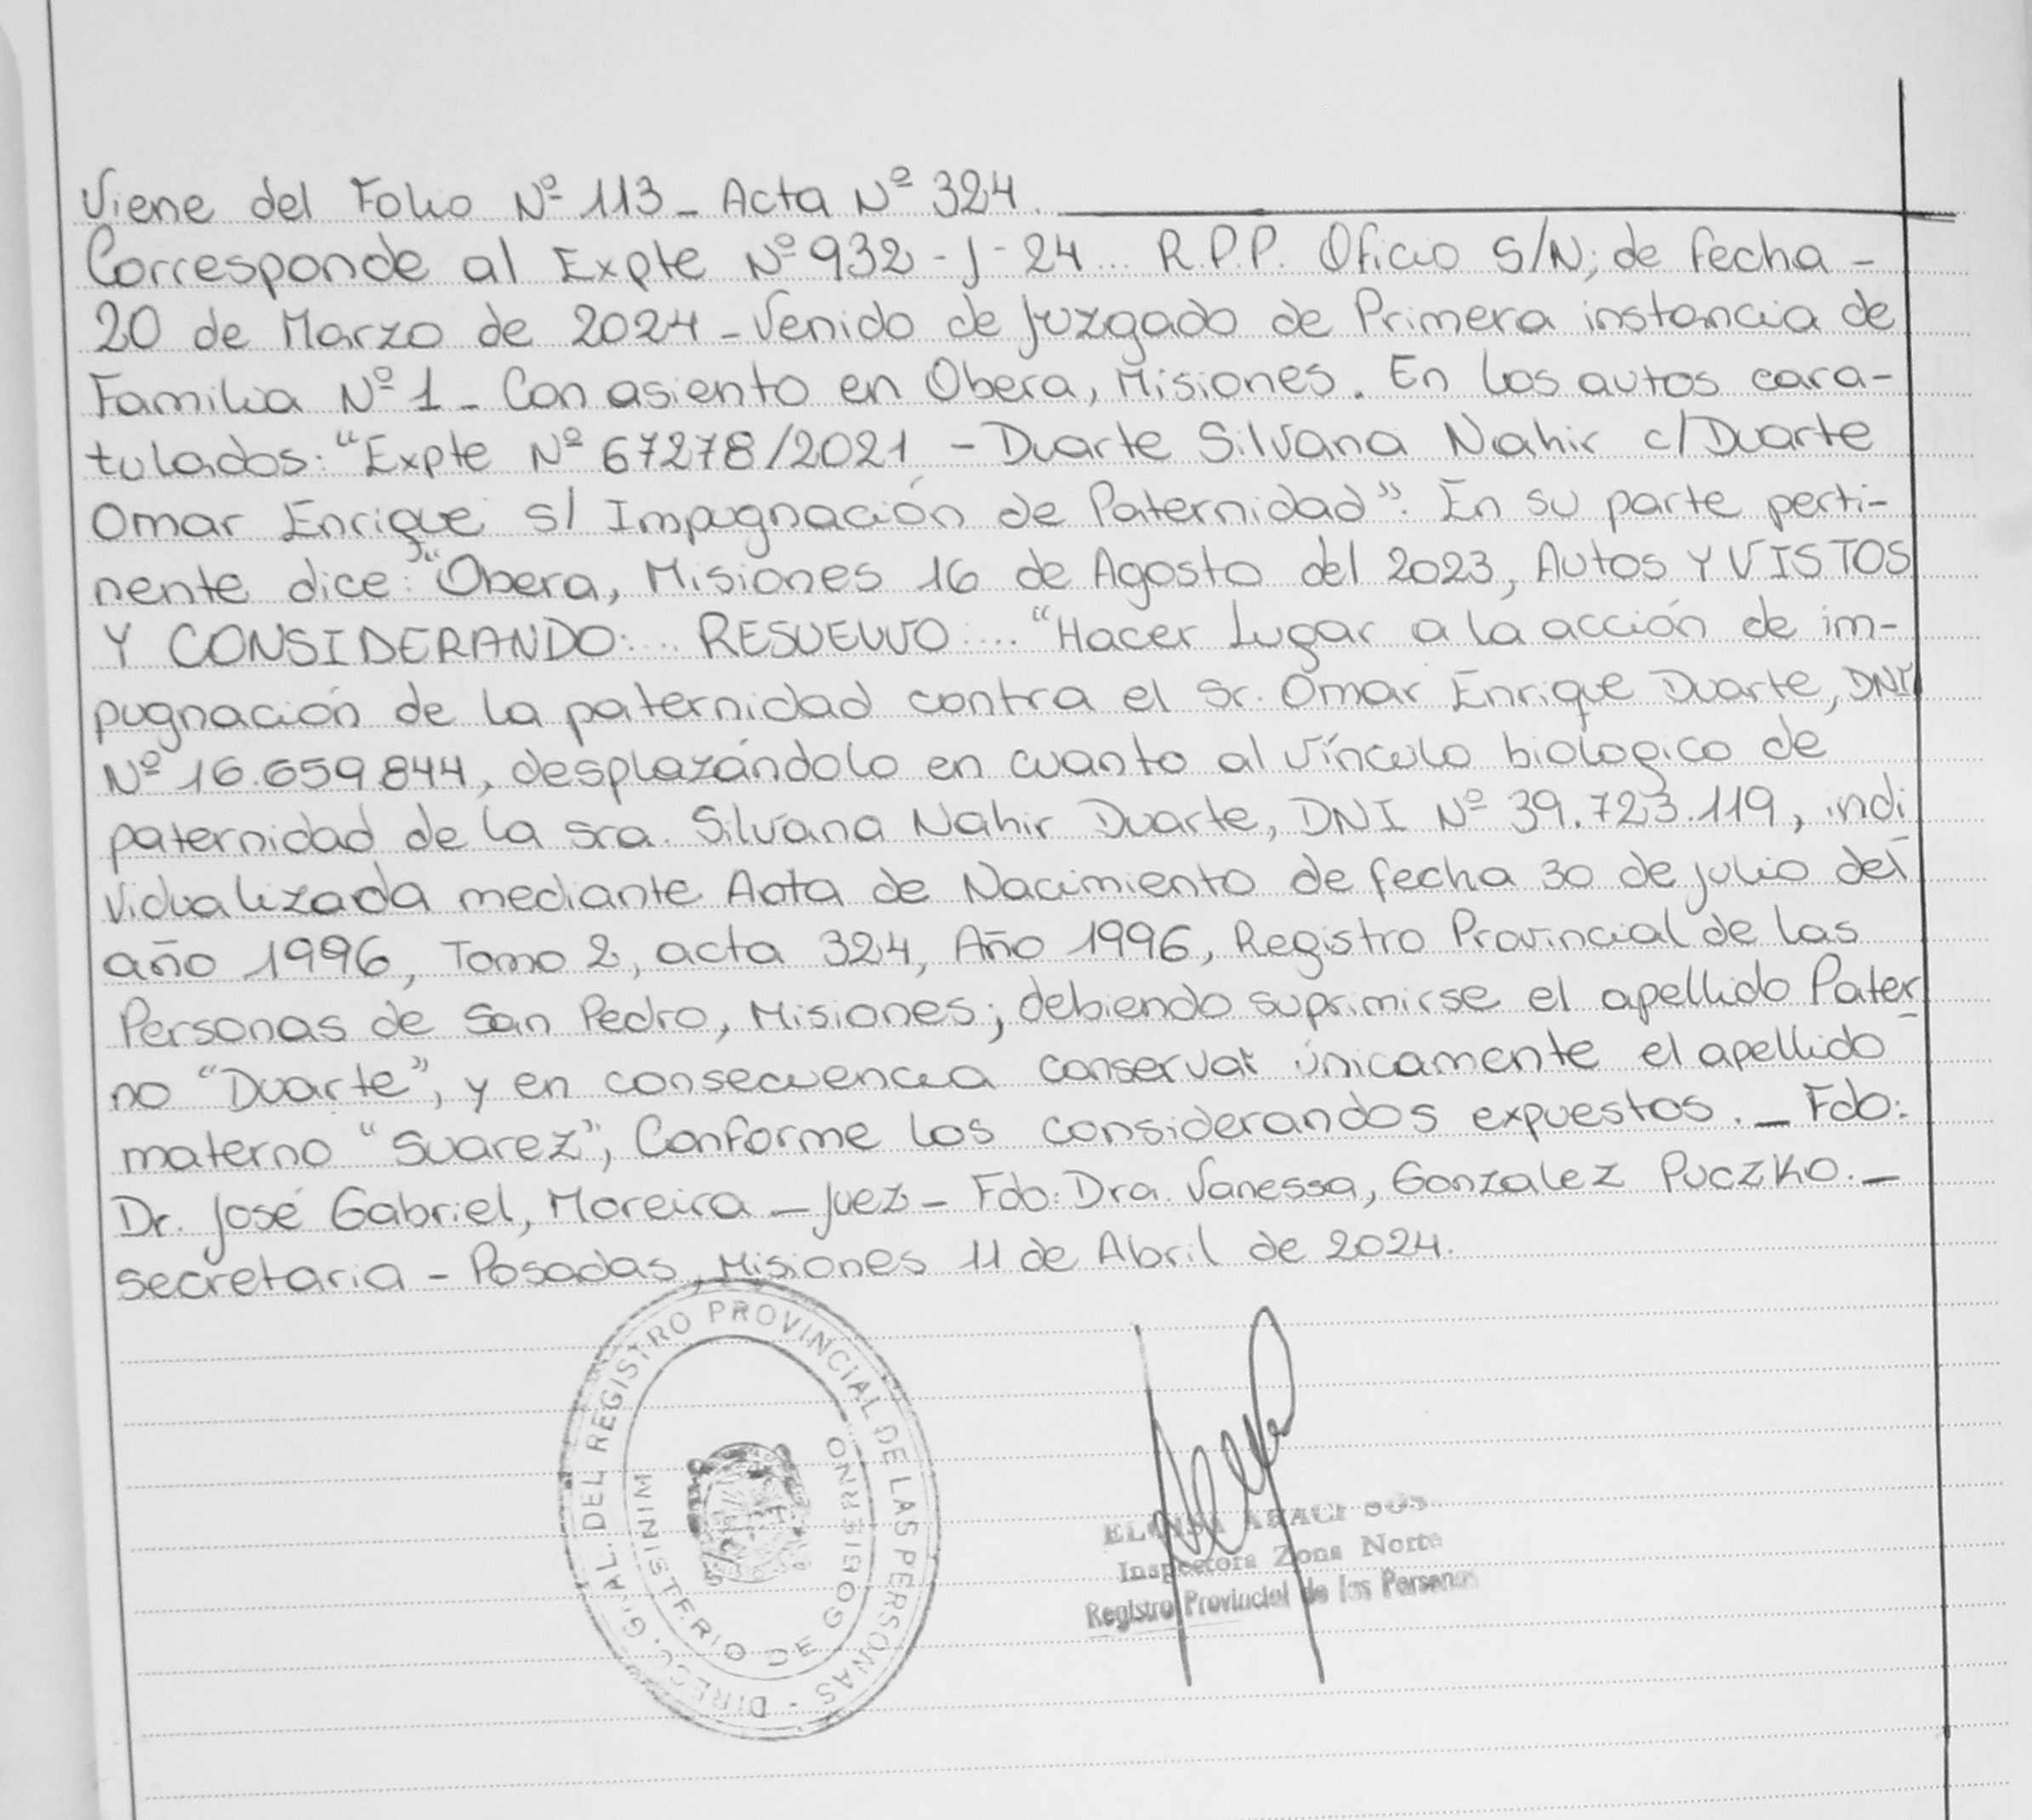 Viene del Folio Nº 113 - Acta Nº 324.
Corresponde al Expte Nº 932 - J - 24... R.P.P. Oficio S/N; de fecha -
20 de Marzo de 2024 - Venido de Juzgado de Primera instancia de
Familia Nº 1 - Con asiento en Obera, Misiones. En los autos cara-
tulados: "Expte Nº 67278/2021 - Duarte Silvana Nahir c/Duarte
Omar Enrique s/ Impugnación de Paternidad". En su parte perti-
nente dice: "Obera, Misiones 16 de Agosto del 2023, Autos Y VISTOS
Y CONSIDERANDO:... RESUELVO:... "Hacer Lugar a la acción de im-
pugnación de la paternidad contra el Sr. Omar Enrique Duarte, DNI
Nº 16.659.844, desplazándolo en cuanto al vínculo biologico de
paternidad de la sra. Silvana Nahir Duarte, DNI Nº 39.723.119, indi
vidualizada mediante Acta de Nacimiento de fecha 30 de julio del
año 1996, Tomo 2, acta 324, Año 1996, Registro Provincial de las
Personas de San Pedro, Misiones; debiendo suprimirse el apellido Pater-
no "Duarte", y en consecuencia conservar únicamente el apellido
materno "Suarez", Conforme los considerandos expuestos. - Fdo:
Dr. José Gabriel, Moreira - Juez - Fdo: Dra. Vanessa, Gonzalez Puczko. -
Secretaria - Posadas, Misiones 11 de Abril de 2024.
DIRECC. GRAL. DEL REGISTRO PROVINCIAL DE LAS PERSONAS -
MINISTERIO DE GOBIERNO
ELOISA
Inspectora Zona Norte
Registro Provincial de las Personas